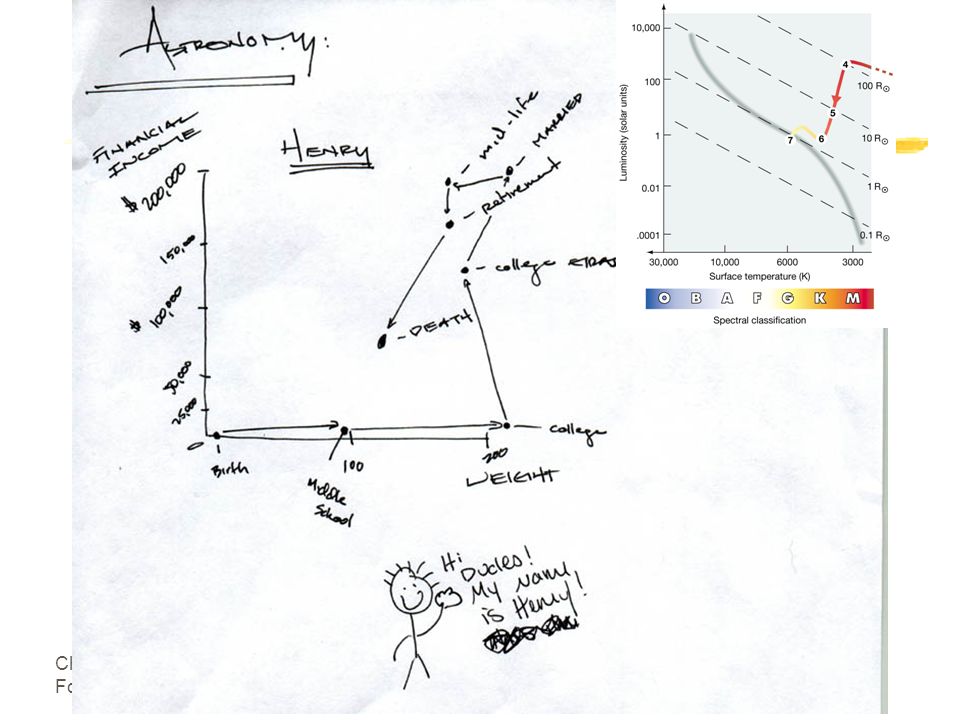 ASTRONOMY:
FINANCIAL
INCOME
HENRY
$ 200,000
150,000
$ 100,000
50,000
25,000
0
mid-life
MARRIED
retirement
DEATH
college
Birth
100
Middle
School
200
WEIGHT
Hi
Dudes!
My Name
is Henry!
Luminosity (solar units)
10,000
100
1
0.01
.0001
4
5
6
7
100 R⊙
10 R⊙
1 R⊙
0.1 R⊙
30,000 10,000 6000 3000
Surface temperature (K)
O B A F G K M
Spectral classification
college